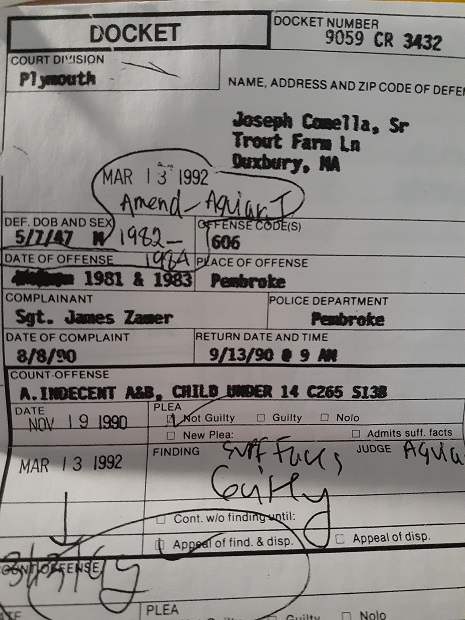 DOCKET
DOCKET NUMBER
9059 CR 3432
COURT DIVISION
Plymouth
NAME, ADDRESS AND ZIP CODE OF DEFE
Joseph Comella, Sr
Trout Farm Ln
Duxbury, MA
MAR 13 1992
Amend - Aquiar J
DEF. DOB AND SEX
5/7/47 M
1982-
1984
OFFENSE CODE(S)
606
DATE OF OFFENSE
1981 & 1983
PLACE OF OFFENSE
Pembroke
COMPLAINANT
Sgt. James Zamer
POLICE DEPARTMENT
Pembroke
DATE OF COMPLAINT
8/8/90
RETURN DATE AND TIME
9/13/90 @ 9 AM
COUNT-OFFENSE
A.INDECENT A&B, CHILD UNDER 14 C265 S13B
DATE
NOV 19 1990
PLEA
Not Guilty
Guilty
Nolo
New Plea:
Admits suff. facts
MAR 13 1992
FINDING
Suff Facts
Guilty
JUDGE
Aquia
Cont. w/o finding until:
Appeal of find. & disp.
Appeal of disp.
COUNT-OFFENSE
PLEA
Guilty
Nolo